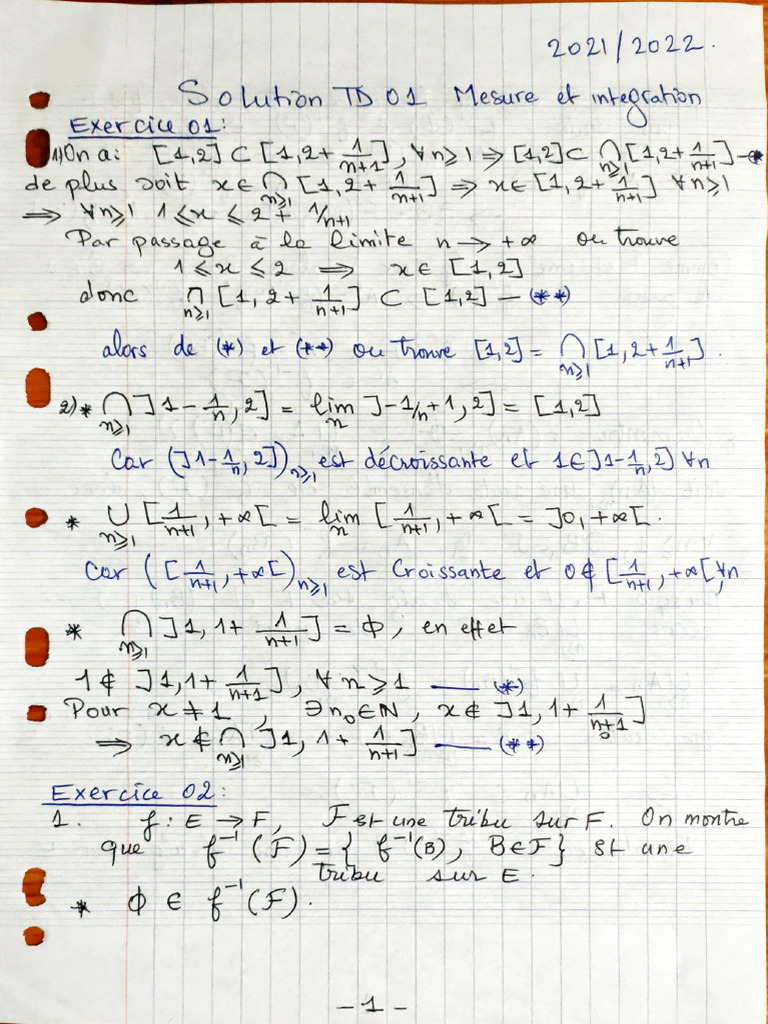 2021/2022.
Solution TD 01 Mesure et integration
Exercice 01:
1) On a: [1,2] ⊂ [1,2+ 1/(n+1)], ∀n⩾1 ⇒ [1,2] ⊂ ⋂_{n⩾1} [1,2+ 1/(n+1)] —*
de plus soit x∈ ⋂_{n⩾1} [1,2+ 1/(n+1)] ⇒ x∈ [1,2+ 1/(n+1)] ∀n⩾1
⇒ ∀n⩾1 1⩽x⩽2+ 1/n+1
Par passage à la limite n→+∞ ou trouve
1⩽x⩽2 ⇒ x∈ [1,2]
donc ⋂_{n⩾1} [1,2+ 1/(n+1)] ⊂ [1,2] — (**)
alors de (*) et (**) ou trouve [1,2] = ⋂_{n⩾1} [1,2+ 1/(n+1)].
2) * ⋂_{n⩾1} ]1- 1/n, 2] = lim_n ]-1/n+1, 2] = [1,2]
Car (]1- 1/n, 2])_{n⩾1} est décroissante et 1∈]1- 1/n, 2] ∀n
* ⋃_{n⩾1} [1/(n+1), +∞[ = lim_n [1/(n+1), +∞[ = ]0, +∞[.
Car ([1/(n+1), +∞[)_{n⩾1} est Croissante et 0∉ [1/(n+1), +∞[, ∀n
* ⋂_{n⩾1} ]1, 1+ 1/(n+1)] = ϕ, en effet
1∉ ]1,1+ 1/(n+1)], ∀n⩾1 — (*)
Pour x≠1, ∃n₀∈ℕ, x∉ ]1, 1+ 1/(n₀+1)]
⇒ x∉ ⋂_{n⩾1} ]1, 1+ 1/(n+1)] — (**)
Exercice 02:
1. f: E → F, F est une tribu sur F. On montre
que f⁻¹(F) = { f⁻¹(B), B∈F } st une
tribu sur E.
* ϕ ∈ f⁻¹(F).
-1-